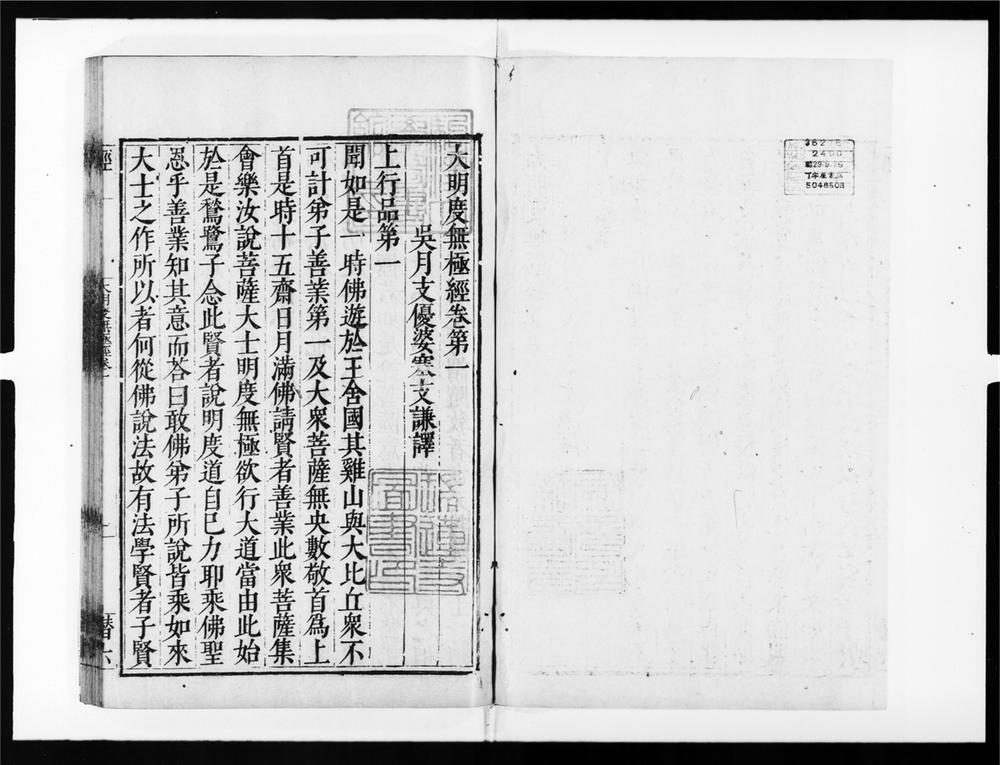 大明度無極經卷第一
吳月支優婆塞支謙譯
上行品第一
聞如是一時佛遊於王舍國其雞山與大比丘衆不
可計弟子善業第一及大衆菩薩無央數敬首爲上
首是時十五齋日月滿佛請賢者善業此衆菩薩集
會樂汝說菩薩大士明度無極欲行大道當由此始
於是鶖鷺子念此賢者說明度道自己力耶乘佛聖
恩乎善業知其意而荅曰敢佛弟子所說皆乘如來
大士之作所以者何從佛說法故有法學賢者子賢
經
大明度無極經卷一
一